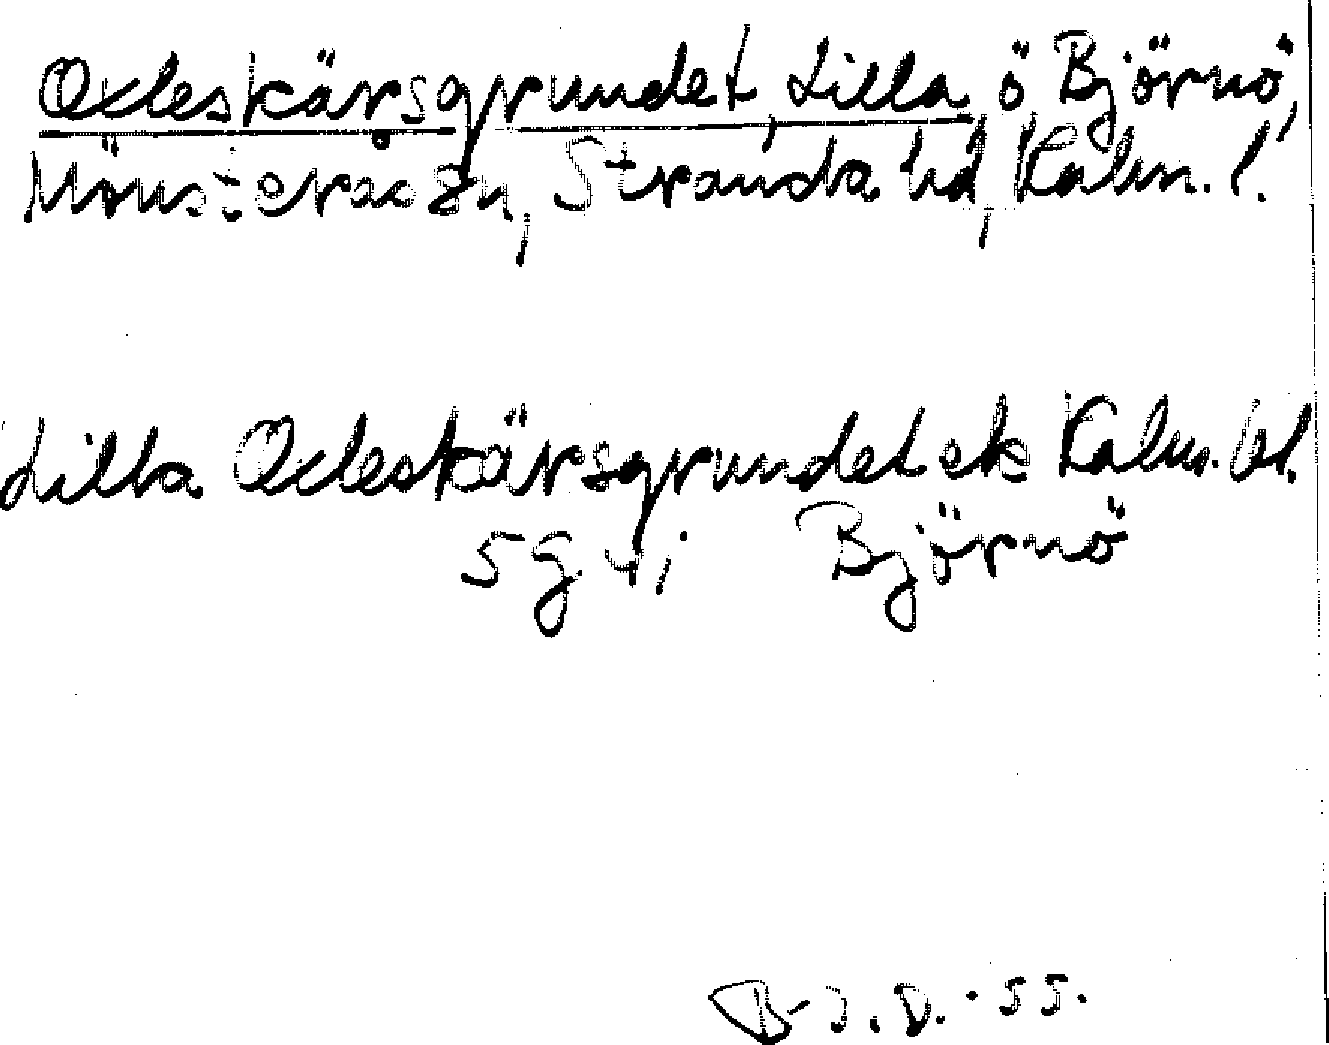 Oxleskärsgrundet, Lilla ö Björnö,
Mönsterås sn, Stranda hd, Kalm. l.
Lilla Oxleskärsgrundet ek Kalm. bl.
5g 4i Björnö
B-J.D.-55.